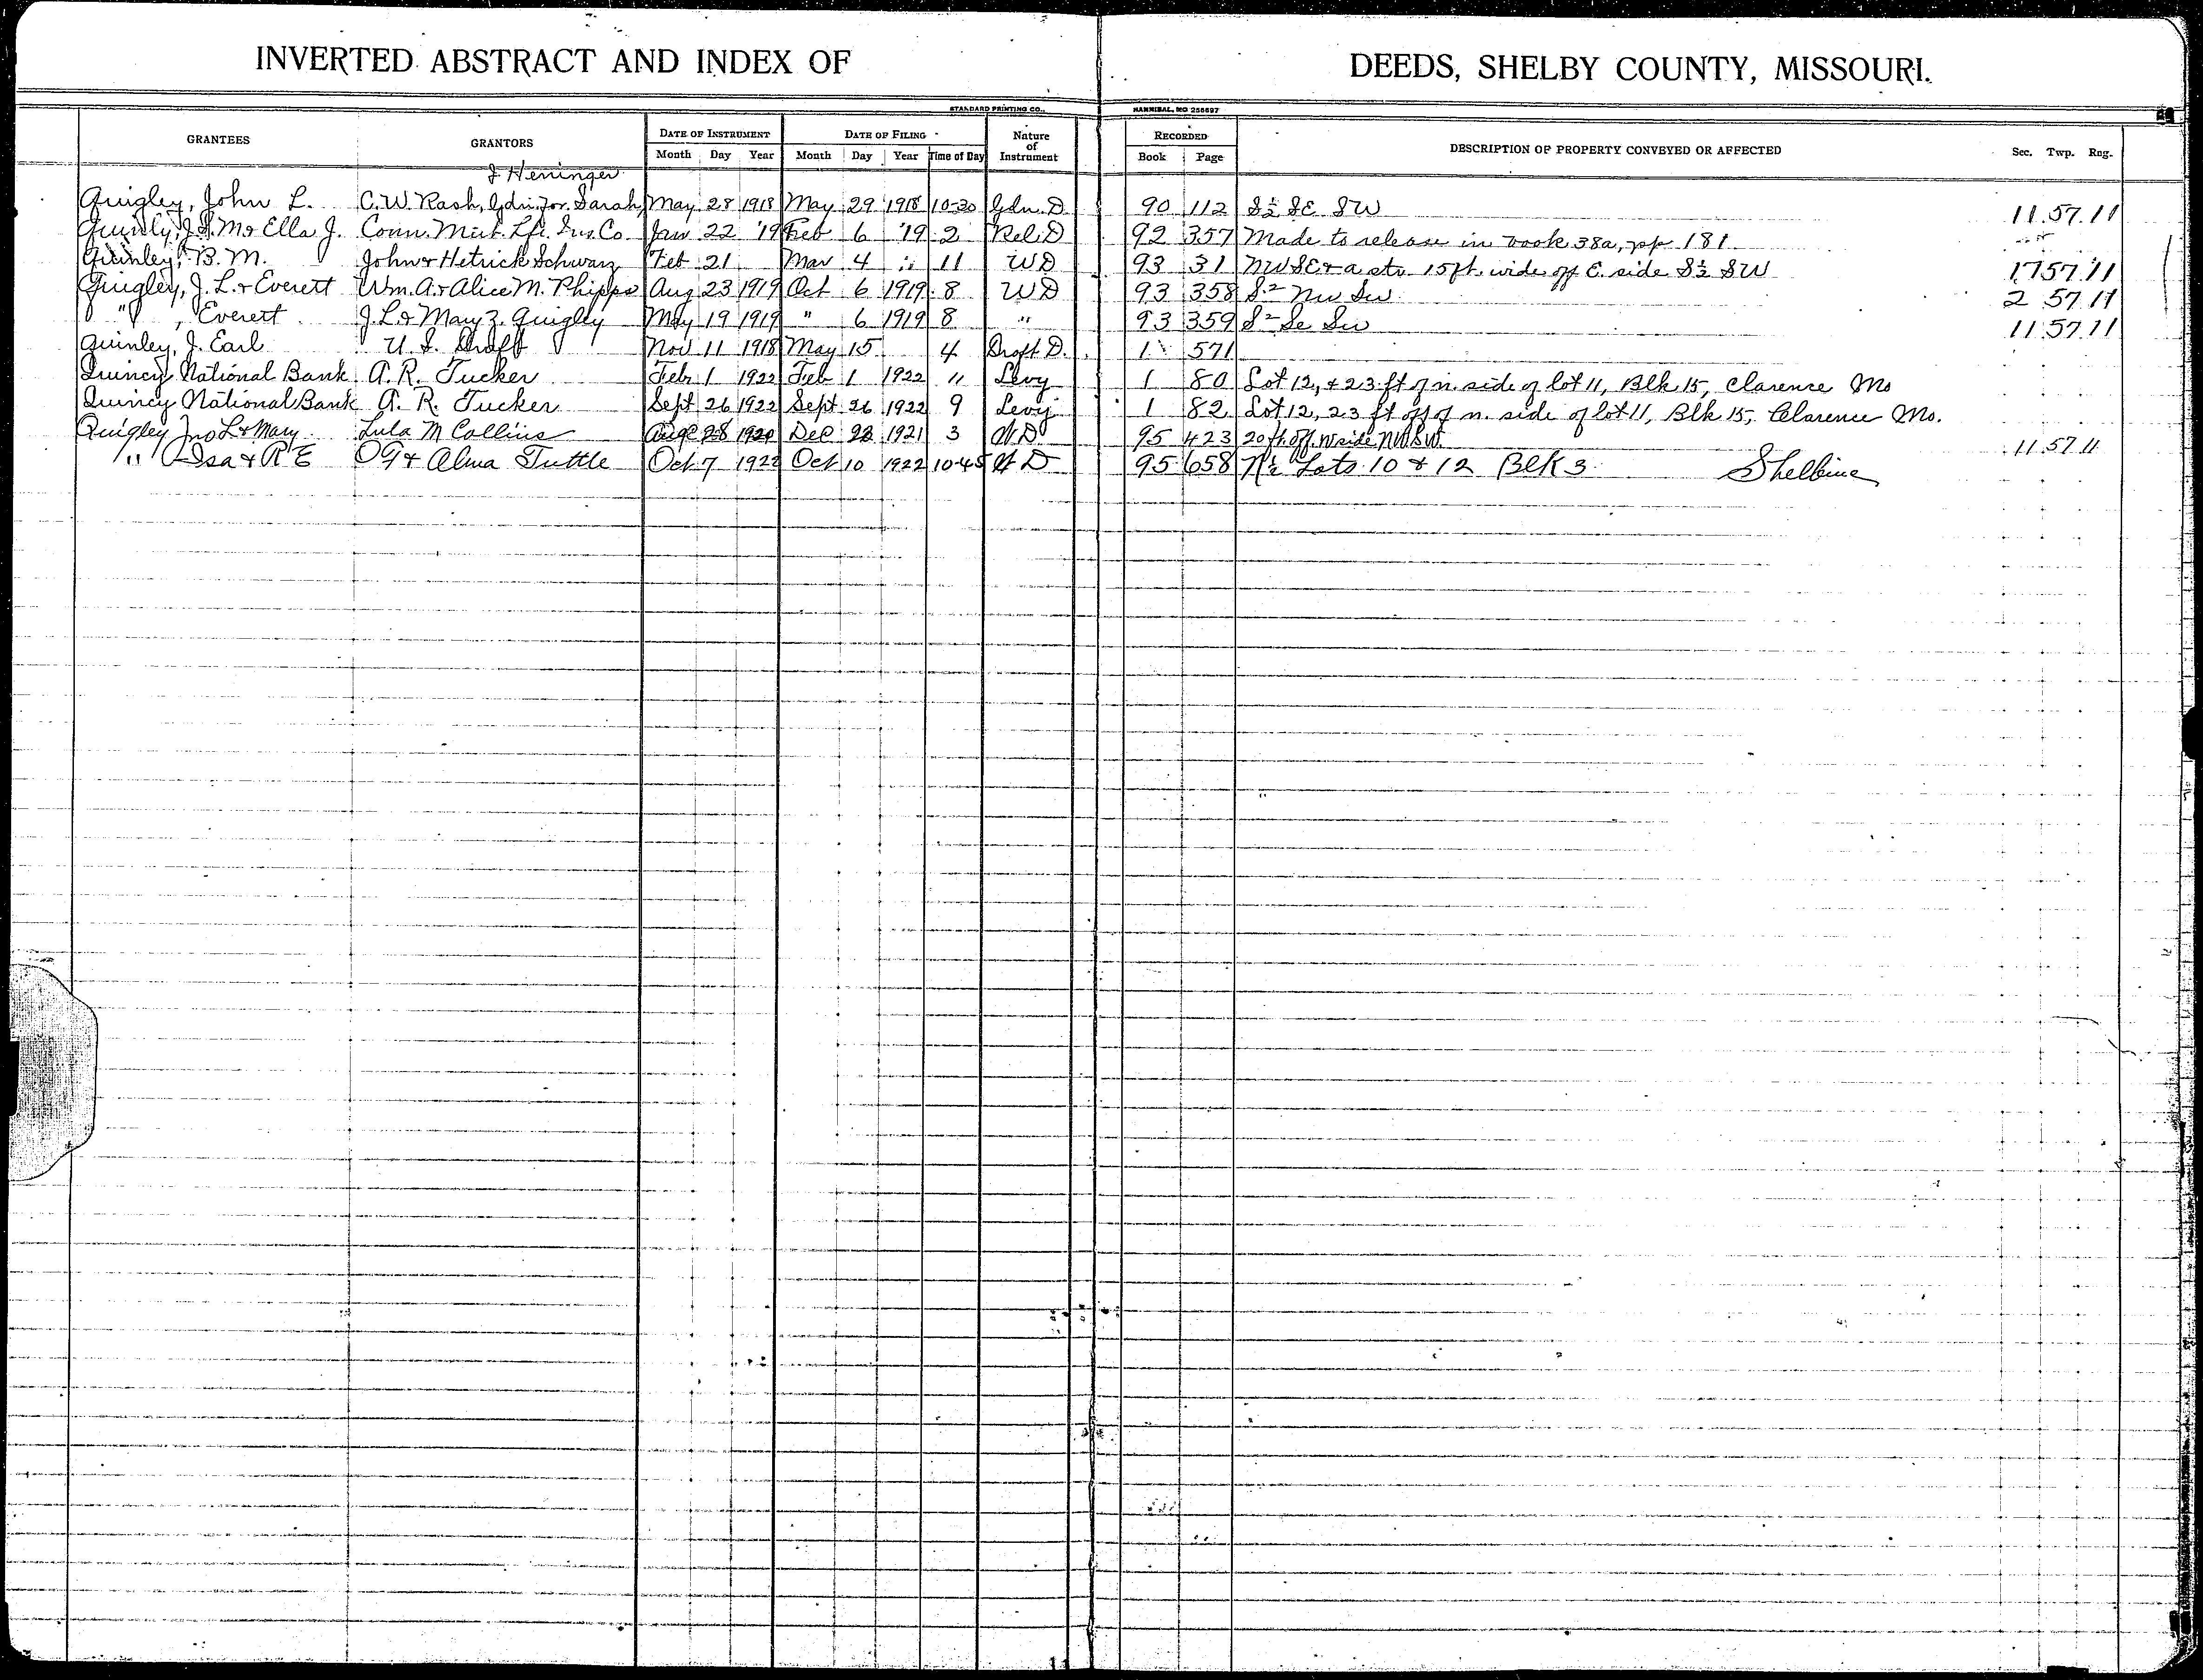 INVERTED ABSTRACT AND INDEX OF DEEDS, SHELBY COUNTY, MISSOURI.
STANDARD PRINTING CO., HANNIBAL, MO 256697
GRANTEES GRANTORS DATE OF INSTRUMENT DATE OF FILING Nature of Instrument RECORDED DESCRIPTION OF PROPERTY CONVEYED OR AFFECTED Sec. Twp. Rng.
Month Day Year Month Day Year Time of Day Book Page
J Heninger
Quigley, John L. C.W. Rash, Gdn. for Sarah May 28 1918 May 29 1918 10-30 Gdn. D 90 112 S½ SE SW 11 57 11
Ella J. Conn. Mut. Lfe. Ins. Co Jan 22 '19 Feb 6 '19 2 Rel. D 92 357 Made to release in book 38a, pp 181
Quinley, B. M. John & Hetrick Schwarz Feb 21 Mar 4 " 11 WD 93 31 NW SE & a str 15 ft. wide off E. side S½ SW 17 57 11
Quigley, J. L. & Everett Wm. A. & Alice M. Phipps Aug 23 1919 Oct 6 1919 8 WD 93 358 S² NW SW 2 57 11
" , Everett J. L. & Mary Z. Quigley May 19 1919 " 6 1919 8 " 93 359 S² Se Sw 11 57 11
Quinley, J. Earl U. S. Draft Nov 11 1918 May 15 4 Draft D. 1 571
Quincy National Bank A. R. Tucker Feb 1 1922 Feb 1 1922 11 Levy 1 80 Lot 12, & 23 ft of n. side of lot 11, Blk 15, Clarence Mo
Quincy National Bank A. R. Tucker Sept 26 1922 Sept 26 1922 9 Levy 1 82 Lot 12, 23 ft off of n. side of lot 11, Blk 15, Clarence Mo.
Quigley Jno L & Mary Lula M Collins Aug 28 1920 Dec 28 1921 3 WD 95 423 20 ft. off. W side NW SW. 11 57 11
" Isa & R E O G & Alma Tuttle Oct 7 1922 Oct 10 1922 10-45 WD 95 658 N½ Lots 10 & 12 Blk 3 Shelbina